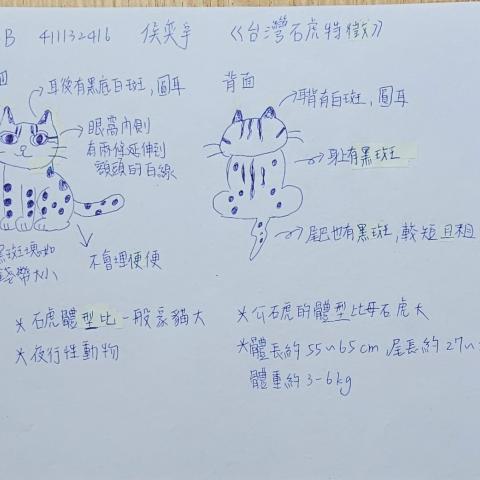 B 41132416 侯奕宇 《台灣石虎特徵》
面
耳後有黑底白斑,圓耳
眼窩內側
有兩條延伸到
額頭的白線
黑斑塊如
錢幣大小
不會埋便便
背面
耳背有白斑,圓耳
身上有黑斑
尾巴也有黑斑,較短且粗
*石虎體型比一般家貓大
*夜行性動物
*公石虎的體型比母石虎大
*體長約55~65cm 尾長約27~
體重約3-6kg